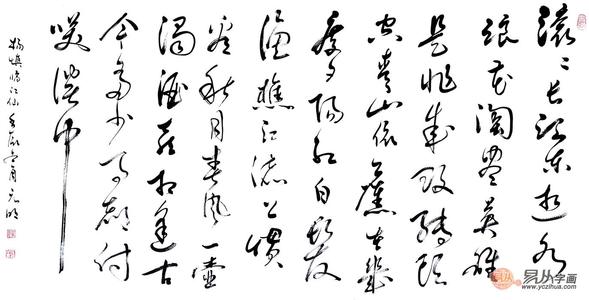 滚〻长江东逝水
浪花淘尽英雄
是非成败转头
空青山依旧在几
度夕阳红白发
渔樵江渚上惯
看秋月春风一壶
浊酒喜相逢古
今多少事都付
笑谈中
杨慎临江仙
易从字画
www.yczihua.com